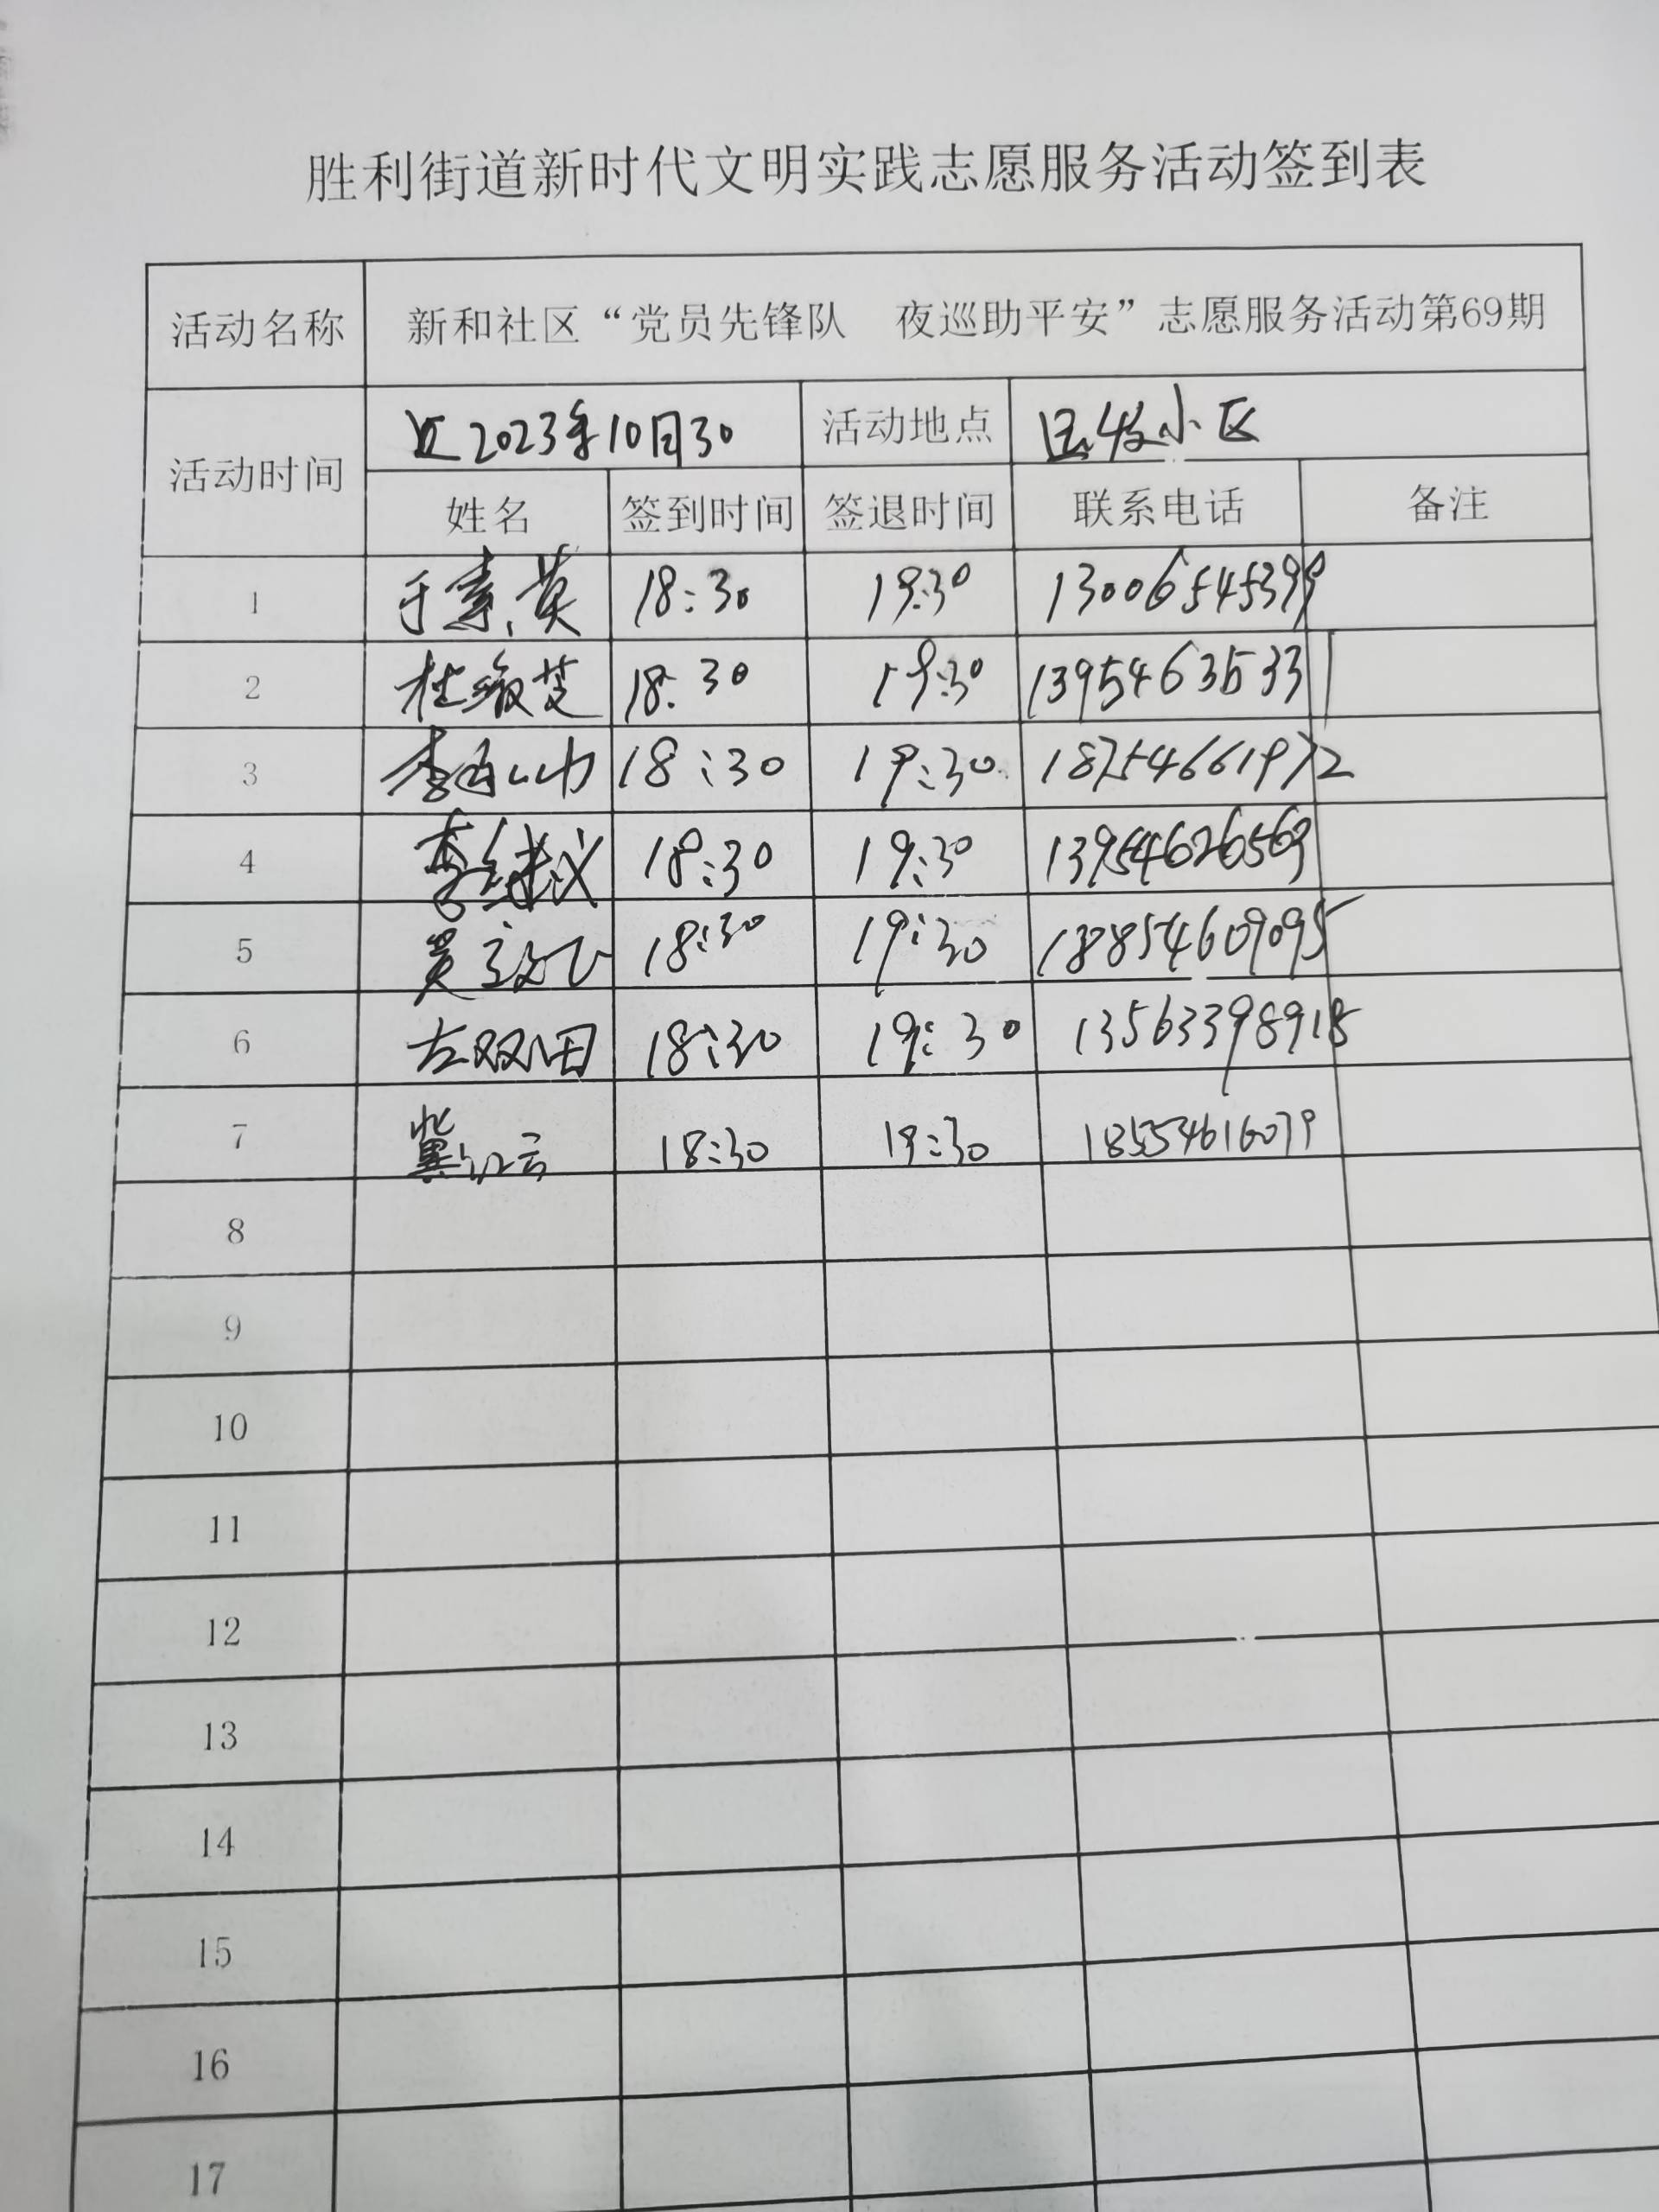 胜利街道新时代文明实践志愿服务活动签到表
活动名称 新和社区“党员先锋队 夜巡助平安”志愿服务活动第69期
活动时间 2023年10月30 活动地点 小区
姓名 签到时间 签退时间 联系电话 备注
1 于素英 18:30 19:30 13006545399
2 杜 芝 18:30 19:30 13954635331
3 李 18:30 19:30 18754661972
4 李 18:30 19:30 13954626563
5 18:30 19:30 18854609095
6 左双田 18:30 19:30 13563398918
7 冀红云 18:30 19:30 18554616079
8
9
10
11
12
13
14
15
16
17